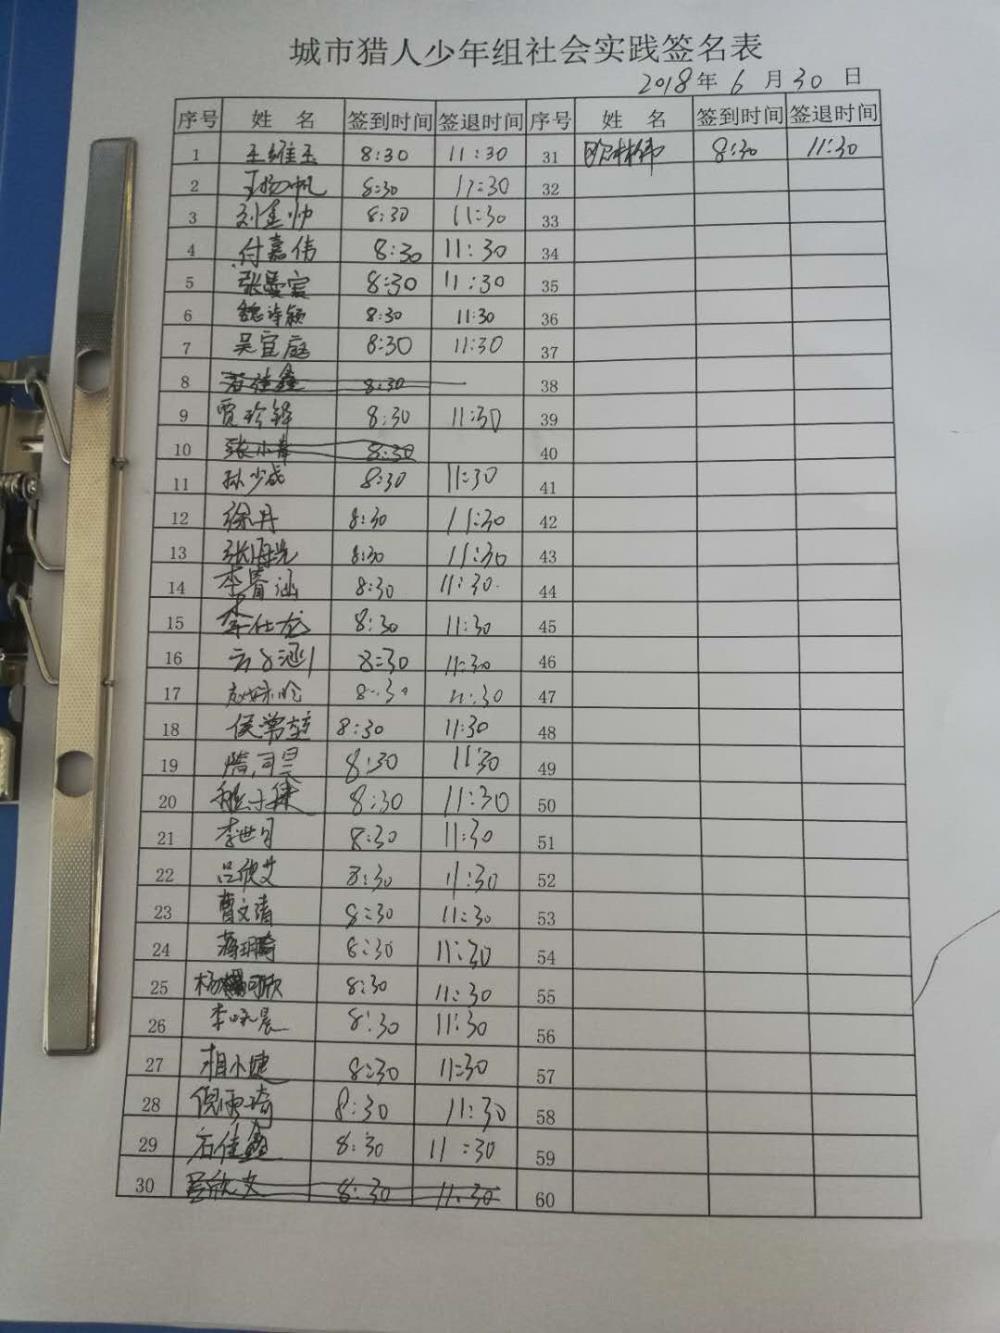 城市猎人少年组社会实践签名表
2018年6月30日
序号 姓名 签到时间 签退时间 序号 姓名 签到时间 签退时间
1 王维玉 8:30 11:30 31 8:30 11:30
2 王杨帆 8:30 11:30 32
3 刘鑫帅 8:30 11:30 33
4 付嘉伟 8:30 11:30 34
5 张曼宸 8:30 11:30 35
6 魏诗颖 8:30 11:30 36
7 吴宜庭 8:30 11:30 37
8 石佳鑫 8:30 38
9 贾珍铎 8:30 11:30 39
10 张小青 8:30 40
11 孙少成 8:30 11:30 41
12 徐丹 8:30 11:30 42
13 张海光 8:30 11:30 43
14 李睿涵 8:30 11:30 44
15 李仕龙 8:30 11:30 45
16 8:30 11:30 46
17 8:30 11:30 47
18 侯 8:30 11:30 48
19 隋司昊 8:30 11:30 49
20 程子健 8:30 11:30 50
21 李世月 8:30 11:30 51
22 吕欣艾 8:30 11:30 52
23 曹文清 8:30 11:30 53
24 蒋玥琦 8:30 11:30 54
25 杨可欣 8:30 11:30 55
26 李咏晨 8:30 11:30 56
27 相小婕 8:30 11:30 57
28 倪雨琦 8:30 11:30 58
29 石佳鑫 8:30 11:30 59
30 吕欣艾 8:30 11:30 60